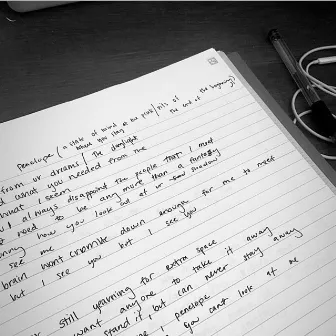 penelope (a state of mind at the end / pits of
where you stay the end of the beginning)
from ur dreams / the daylight
what you needed from me
what I seem
I always disappoint the people that I meet
need to be any more than a fantasy
how you look at ur shadow
see me
brain wont crumble down enough for me to meet
but I see you but I see you
still yearning for extra space
want anyone to take it away
stand it, but can never stay away
penelope
you cant look at me